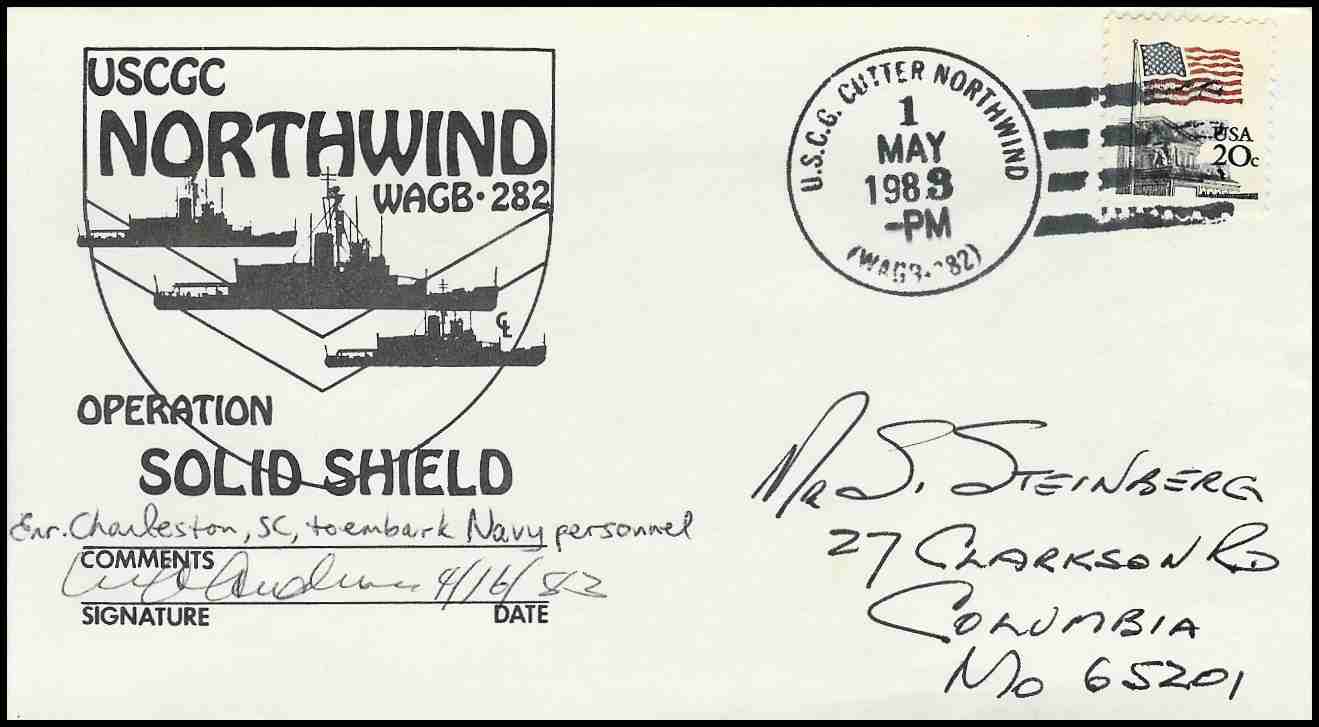 USCGC
NORTHWIND
WAGB·282
OPERATION
SOLID SHIELD
Enr. Charleston, SC, to embark Navy personnel
COMMENTS
4/16/83
SIGNATURE DATE
U.S.C.G. CUTTER NORTHWIND
1
MAY
1983
-PM
(WAGB-282)
USA
20c
Mr S. STEINBERG
27 CLARKSON RD
COLUMBIA
Mo 65201